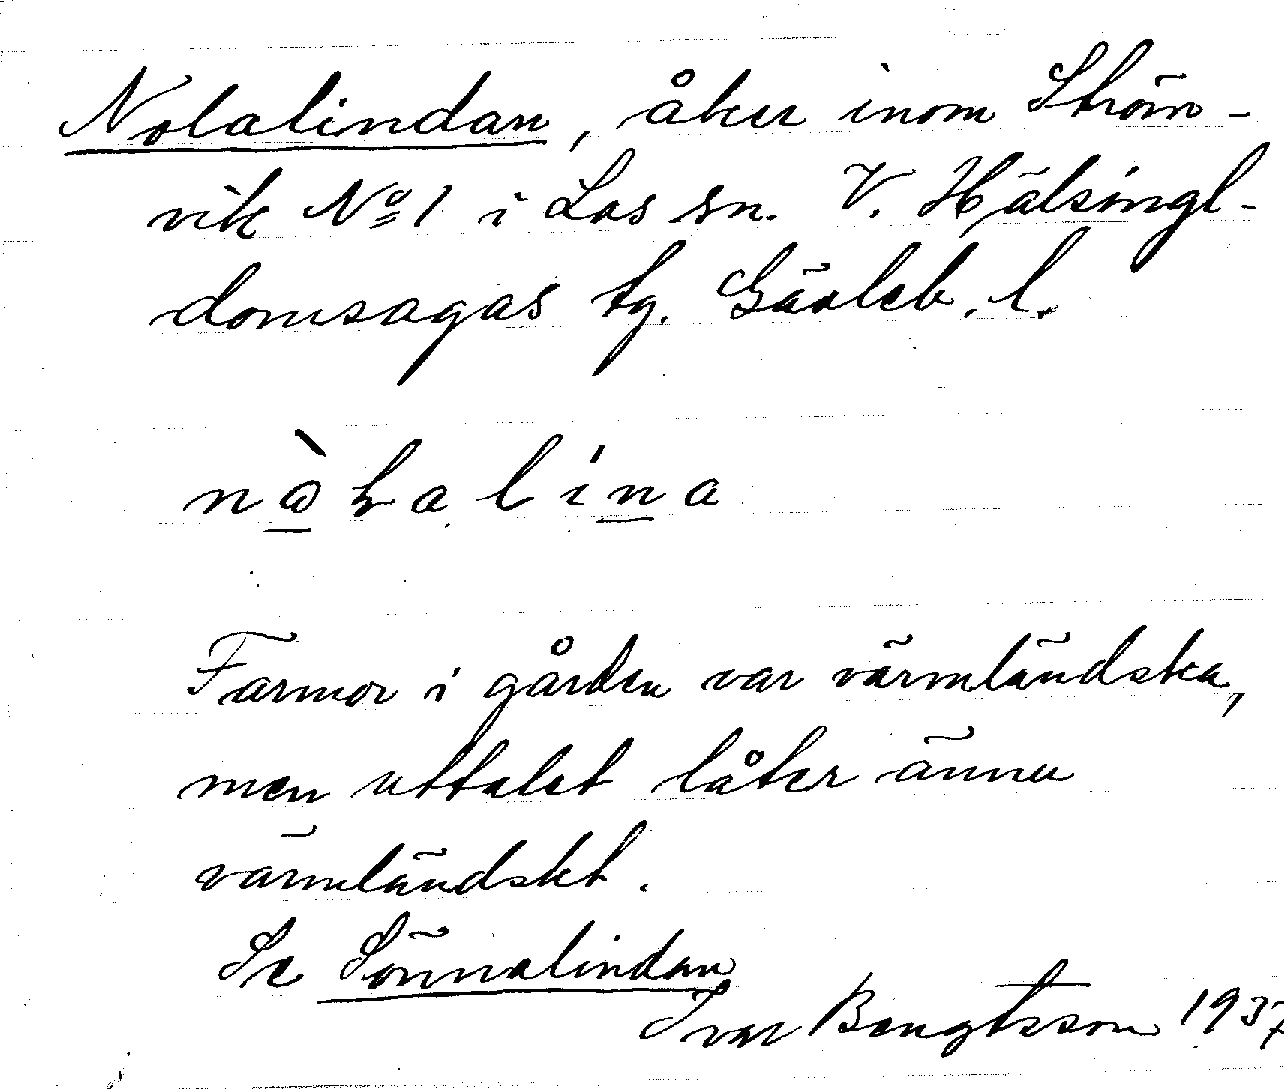 Nolalindan, åker inom Ström-
vik No 1 i Los sn. V. Hälsingl-
domsagas tg. Gävleb. l.
nòɽalina
Farmor i gården var värmländska,
men uttalet låter ännu
värmländskt.
Se Sönnalindan
Ivar Bengtsson 1937